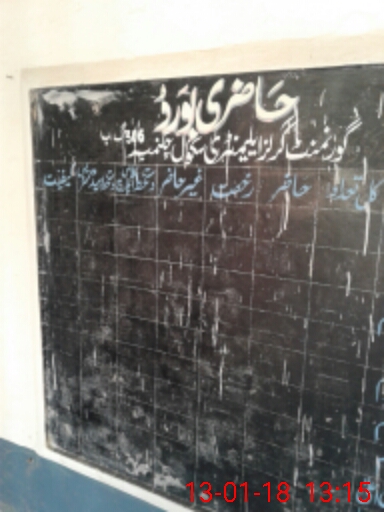 حاضری بورڈ
گورنمنٹ گرلز ایلیمنٹری سکول چک نمبر 316 گ ب
کل تعداد حاضر رخصت غیر حاضر دستخط کیفیت
13-01-18 13:15